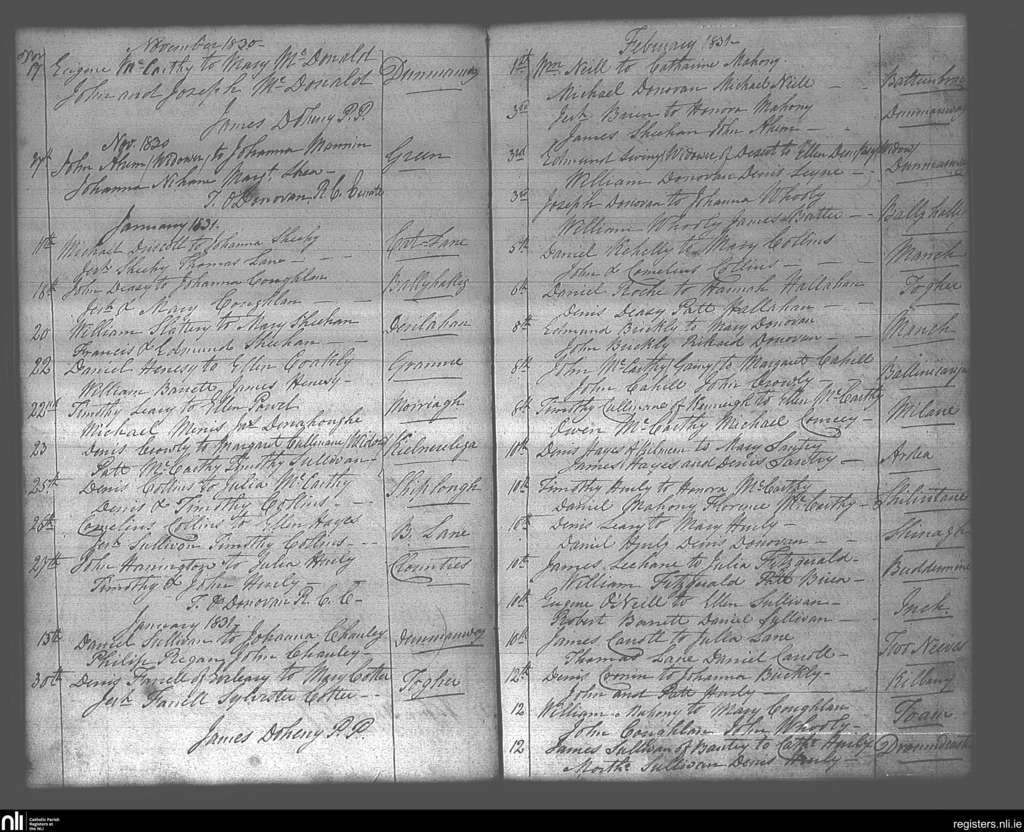 November 1830
Nov 17 Eugene McCarthy to Mary McDonald
John and Joseph McDonald Dunmanway
James Doheny P.P.
Nov. 1830
27th John Ahern (Widower) to Johanna Mannin Green
Johanna Nehane Margt. Shea
T. O'Donovan R.C. Curate
January 1831
11th Michael Driscoll to Johanna Sheehy Cat-Lane
Jerh Sheehy Thomas Lane
18th John Deasy to Johanna Coughlan Ballyhalleg
Jerh & Mary Coughlan
20 William Slattery to Mary Sheehan Derilahan
Francis & Edmund Sheehan
22 Daniel Henesy to Ellen Coakly
William Barrett James Henesy
22nd Timothy Leary to Ellen Powel
Michael Donahoughe
23 Denis Crowly to Margaret Cullinane Widow
Patt McCarthy Timothy Sullivan
25th Denis Collins to Julia McCarthy
Denis & Timothy Collins
26th Cornelius Collins to Ellen Hayes B. Lane
Jerh Sullivan Timothy Collins
27th John Harrington to Julia Hurly Clounties
Timothy & John Hurly
T. O'Donovan R.C.C.
January 1831
15th Daniel Sullivan to Johanna Chauley Dunmanway
Philip Regan John Chauley
30th Denis Farrell of to Mary Cotter Togher
Jerh Farrell Sylvester Cotter
James Doheny P.P.
February 1831
1st Wm Neill to Catharine Mahony
Michael Donovan Michael Neill
3rd Jerh Brien to Honora Mahony Dunmanway
James Sheehan John Ahern
3rd Edmund of Desert to Ellen Widow Dunmanway
William Donovan Denis Leyne
3rd Joseph Donovan to Johanna Whooly
William Whooly James Batter
5th Daniel Kehelly to Mary Collins Manch
John & Cornelius Collins
6th Daniel Roche to Hannah Hallahan Togher
Denis Deasy Patt Hallahan
8th Edmund Buckly to Mary Donovan Manch
John Buckly Richard Donovan
8th John McCarthy to Margaret Cahill
John Cahill John Crowly
8th Timothy Cullinane of Kenneigh to Ellen McCarthy Milane
Owen McCarthy Michael
10th Denis Hayes of Kilmeen to Mary Santry Ardea
James Hayes and Denis Santry
10th Timothy Hurly to Honora McCarthy
Daniel Mahony Florence McCarthy
10th Denis Leary to Mary Hurly
Daniel Hurly Denis Donovan
10th James Leehane to Julia Fitzgerald
William Fitzgerald Patt Brien
10th Eugene O'Neill to Ellen Sullivan Inch
Robert Barrett Daniel Sullivan
10th James Caroll to Julia Lane
Thomas Lane Daniel Caroll
12th Denis Cronin to Johanna Buckly
John and Patt Hurly
12 William Mahony to Mary Coughlan Toam
John Coughlan John Whooly
12 James Sullivan of to Cathe Hurly
Morth. Sullivan Denis Hurly
nli Catholic Parish
Registers at
the NLI
registers.nli.ie